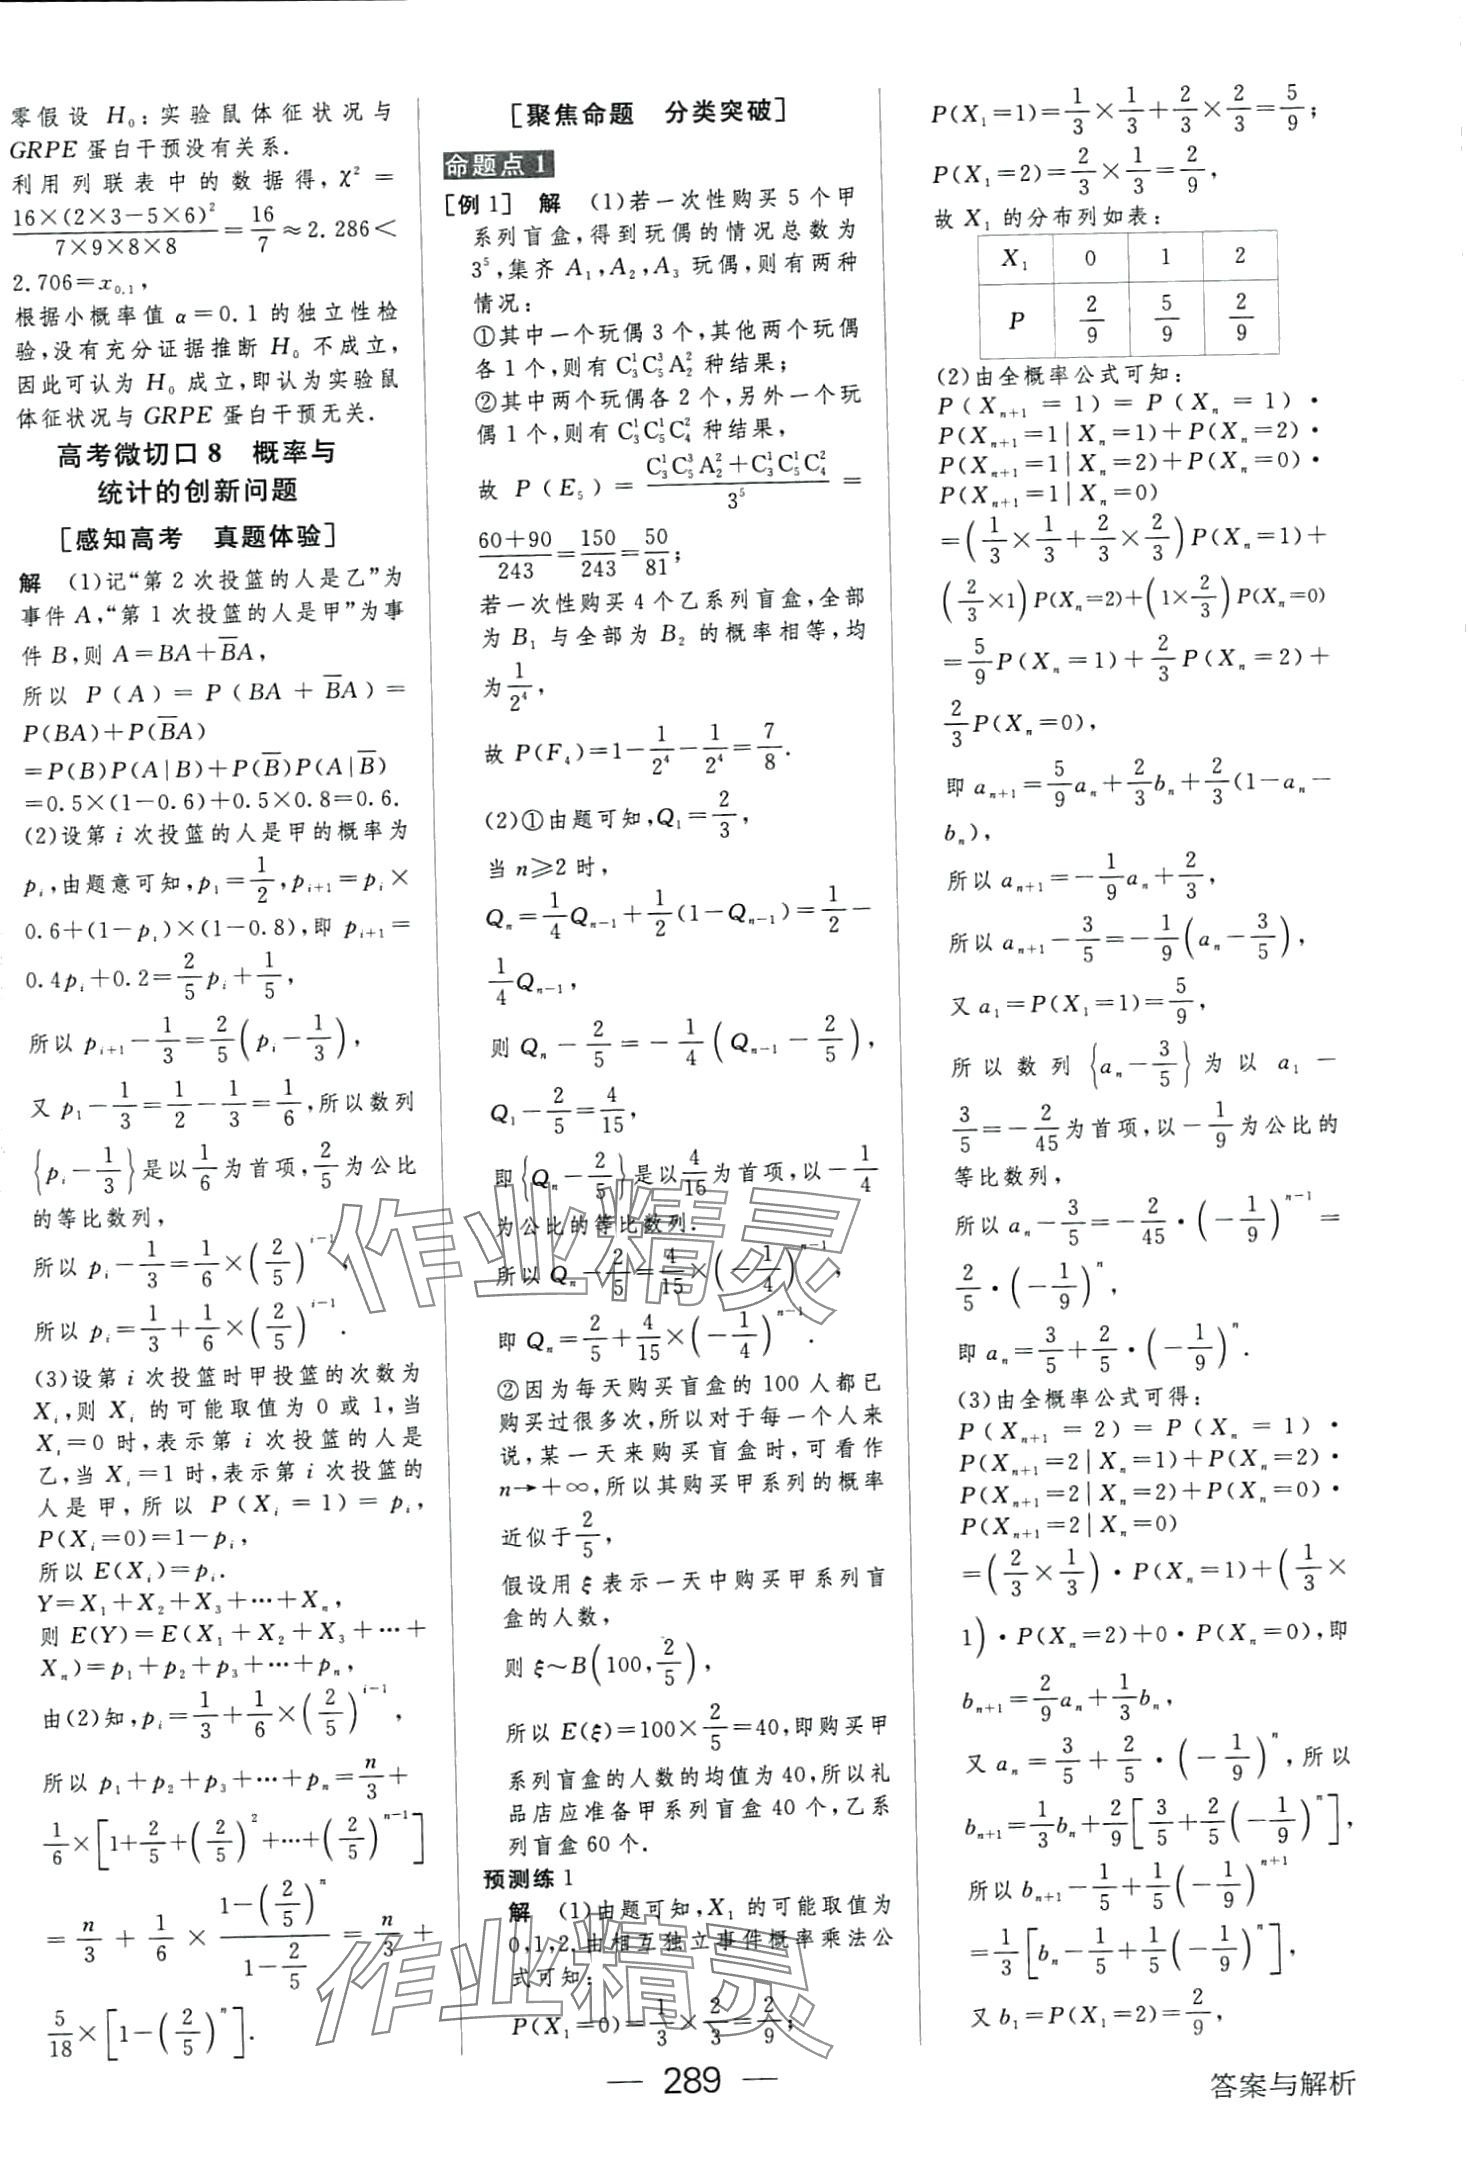 零假设 H₀:实验鼠体征状况与
GRPE 蛋白干预没有关系.
利用列联表中的数据得, χ² =
\frac{16×(2×3-5×6)²}{7×9×8×8} = \frac{16}{7} ≈ 2.286 <
2.706 = x_{0.1},
根据小概率值 α=0.1 的独立性检
验,没有充分证据推断 H₀ 不成立,
因此可认为 H₀ 成立,即认为实验鼠
体征状况与 GRPE 蛋白干预无关.
高考微切口 8 概率与
统计的创新问题
[感知高考 真题体验]
解 (1)记“第 2 次投篮的人是乙”为
事件 A,“第 1 次投篮的人是甲”为事
件 B,则 A=BA+\overline{B}A,
所以 P(A)=P(BA+\overline{B}A)=
P(BA)+P(\overline{B}A)
=P(B)P(A|B)+P(\overline{B})P(A|\overline{B})
=0.5×(1-0.6)+0.5×0.8=0.6.
(2)设第 i 次投篮的人是甲的概率为
p_i,由题意可知, p_1=\frac{1}{2}, p_{i+1}=p_i×
0.6+(1-p_i)×(1-0.8),即 p_{i+1}=
0.4p_i+0.2=\frac{2}{5}p_i+\frac{1}{5},
所以 p_{i+1}-\frac{1}{3}=\frac{2}{5}(p_i-\frac{1}{3}),
又 p_1-\frac{1}{3}=\frac{1}{2}-\frac{1}{3}=\frac{1}{6},所以数列
{p_i-\frac{1}{3}}是以\frac{1}{6}为首项,\frac{2}{5}为公比
的等比数列,
所以 p_i-\frac{1}{3}=\frac{1}{6}×(\frac{2}{5})^{i-1},
所以 p_i=\frac{1}{3}+\frac{1}{6}×(\frac{2}{5})^{i-1}.
(3)设第 i 次投篮时甲投篮的次数为
X_i,则 X_i 的可能取值为 0 或 1,当
X_i=0 时,表示第 i 次投篮的人是
乙,当 X_i=1 时,表示第 i 次投篮的
人是甲,所以 P(X_i=1)=p_i,
P(X_i=0)=1-p_i,
所以 E(X_i)=p_i.
Y=X_1+X_2+X_3+⋯+X_n,
则 E(Y)=E(X_1+X_2+X_3+⋯+
X_n)=p_1+p_2+p_3+⋯+p_n,
由(2)知, p_i=\frac{1}{3}+\frac{1}{6}×(\frac{2}{5})^{i-1},
所以 p_1+p_2+p_3+⋯+p_n=\frac{n}{3}+
\frac{1}{6}×[1+\frac{2}{5}+(\frac{2}{5})^2+⋯+(\frac{2}{5})^{n-1}]
=\frac{n}{3}+\frac{1}{6}×\frac{1-(\frac{2}{5})^n}{1-\frac{2}{5}}=\frac{n}{3}+
\frac{5}{18}×[1-(\frac{2}{5})^n].
[聚焦命题 分类突破]
命题点 1
[例 1] 解 (1)若一次性购买 5 个甲
系列盲盒,得到玩偶的情况总数为
3^5,集齐 A_1,A_2,A_3 玩偶,则有两种
情况:
①其中一个玩偶 3 个,其他两个玩偶
各 1 个,则有 C_3^1C_5^3A_2^2 种结果;
②其中两个玩偶各 2 个,另外一个玩
偶 1 个,则有 C_3^1C_5^1C_4^2 种结果,
故 P(E_5)=\frac{C_3^1C_5^3A_2^2+C_3^1C_5^1C_4^2}{3^5}=
\frac{60+90}{243}=\frac{150}{243}=\frac{50}{81};
若一次性购买 4 个乙系列盲盒,全部
为 B_1 与全部为 B_2 的概率相等,均
为\frac{1}{2^4},
故 P(F_4)=1-\frac{1}{2^4}-\frac{1}{2^4}=\frac{7}{8}.
(2)①由题可知, Q_1=\frac{2}{3},
当 n≥2 时,
Q_n=\frac{1}{4}Q_{n-1}+\frac{1}{2}(1-Q_{n-1})=\frac{1}{2}-
\frac{1}{4}Q_{n-1},
则 Q_n-\frac{2}{5}=-\frac{1}{4}(Q_{n-1}-\frac{2}{5}),
Q_1-\frac{2}{5}=\frac{4}{15},
即{Q_n-\frac{2}{5}}是以\frac{4}{15}为首项,以-\frac{1}{4}
为公比的等比数列.
所以 Q_n-\frac{2}{5}=\frac{4}{15}×(-\frac{1}{4})^{n-1},
即 Q_n=\frac{2}{5}+\frac{4}{15}×(-\frac{1}{4})^{n-1}.
②因为每天购买盲盒的 100 人都已
购买过很多次,所以对于每一个人来
说,某一天来购买盲盒时,可看作
n→+∞,所以其购买甲系列的概率
近似于\frac{2}{5},
假设用 ξ 表示一天中购买甲系列盲
盒的人数,
则 ξ~B(100,\frac{2}{5}),
所以 E(ξ)=100×\frac{2}{5}=40,即购买甲
系列盲盒的人数的均值为 40,所以礼
品店应准备甲系列盲盒 40 个,乙系
列盲盒 60 个.
预测练 1
解 (1)由题可知,X_1 的可能取值为
0,1,2,由相互独立事件概率乘法公
式可知:
P(X_1=0)=\frac{1}{3}×\frac{2}{3}=\frac{2}{9};
P(X_1=1)=\frac{1}{3}×\frac{1}{3}+\frac{2}{3}×\frac{2}{3}=\frac{5}{9};
P(X_1=2)=\frac{2}{3}×\frac{1}{3}=\frac{2}{9},
故 X_1 的分布列如表:
X_1 0 1 2
P \frac{2}{9} \frac{5}{9} \frac{2}{9}
(2)由全概率公式可知:
P(X_{n+1}=1)=P(X_n=1)·
P(X_{n+1}=1|X_n=1)+P(X_n=2)·
P(X_{n+1}=1|X_n=2)+P(X_n=0)·
P(X_{n+1}=1|X_n=0)
=(\frac{1}{3}×\frac{1}{3}+\frac{2}{3}×\frac{2}{3})P(X_n=1)+
(\frac{2}{3}×1)P(X_n=2)+(1×\frac{2}{3})P(X_n=0)
=\frac{5}{9}P(X_n=1)+\frac{2}{3}P(X_n=2)+
\frac{2}{3}P(X_n=0),
即 a_{n+1}=\frac{5}{9}a_n+\frac{2}{3}b_n+\frac{2}{3}(1-a_n-
b_n),
所以 a_{n+1}=-\frac{1}{9}a_n+\frac{2}{3},
所以 a_{n+1}-\frac{3}{5}=-\frac{1}{9}(a_n-\frac{3}{5}),
又 a_1=P(X_1=1)=\frac{5}{9},
所以数列{a_n-\frac{3}{5}}为以 a_1-
\frac{3}{5}=-\frac{2}{45}为首项,以-\frac{1}{9}为公比的
等比数列,
所以 a_n-\frac{3}{5}=-\frac{2}{45}·(-\frac{1}{9})^{n-1}=
\frac{2}{5}·(-\frac{1}{9})^n,
即 a_n=\frac{3}{5}+\frac{2}{5}·(-\frac{1}{9})^n.
(3)由全概率公式可得:
P(X_{n+1}=2)=P(X_n=1)·
P(X_{n+1}=2|X_n=1)+P(X_n=2)·
P(X_{n+1}=2|X_n=2)+P(X_n=0)·
P(X_{n+1}=2|X_n=0)
=(\frac{2}{3}×\frac{1}{3})·P(X_n=1)+(\frac{1}{3}×
1)·P(X_n=2)+0·P(X_n=0),即
b_{n+1}=\frac{2}{9}a_n+\frac{1}{3}b_n,
又 a_n=\frac{3}{5}+\frac{2}{5}·(-\frac{1}{9})^n,所以
b_{n+1}=\frac{1}{3}b_n+\frac{2}{9}[\frac{3}{5}+\frac{2}{5}(-\frac{1}{9})^n],
所以 b_{n+1}-\frac{1}{5}+\frac{1}{5}(-\frac{1}{9})^{n+1}
=\frac{1}{3}[b_n-\frac{1}{5}+\frac{1}{5}(-\frac{1}{9})^n],
又 b_1=P(X_1=2)=\frac{2}{9},
— 289 —
答案与解析
作业精灵
作业精灵